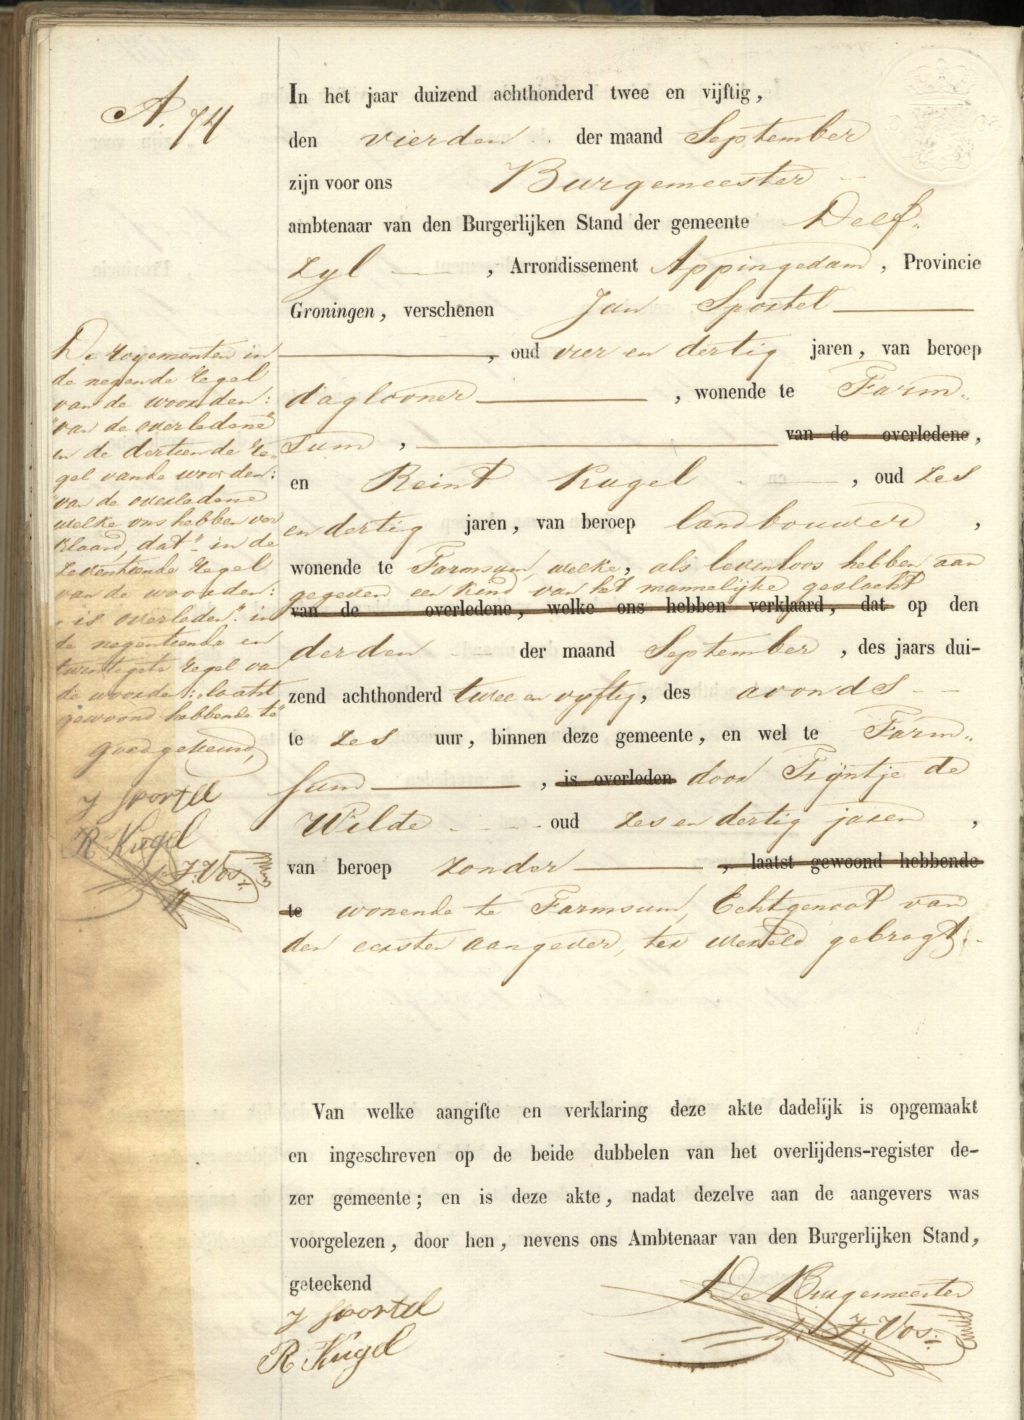 A. 74
In het jaar duizend achthonderd twee en vijftig,
den vierden der maand September
zijn voor ons Burgemeester
ambtenaar van den Burgerlijken Stand der gemeente Delf-
zyl, Arrondissement Appingedam, Provincie
Groningen, verschenen Jan Sportel
, oud vier en dertig jaren, van beroep
daglooner, wonende te Farm-
sum, van de overledene,
en Reint Kugel, oud zes
en dertig jaren, van beroep landbouwer,
wonende te Farmsum, welke, als levenloos hebben aan
gegeven een kind van het mannelijke geslacht
van de overledene, welke ons hebben verklaard, dat op den
derden der maand September, des jaars dui-
zend achthonderd twee en vyftig, des avonds
te zes uur, binnen deze gemeente, en wel te Farm-
sum, is overleden door Trijntje de
Wilde oud zes en dertig jaren,
van beroep zonder, laatst gewoond hebbende
te wonende te Farmsum, Echtgenoot van
den eersten aangever, ter wereld gebragt.
De royementen in
de negende regel
van de woorden:
"van de overledene"
in de dertiende re-
gel van de woorden:
"van de overledene
welke ons hebben ver
klaard, dat" in de
zeventiende regel
van de woorden:
"is overleden" in
de negentiende en
twintigste regel van
de woorden: "laatst
gewoond hebbende te"
goedgekeurd,
J Sportel
R. Kugel
J. Vos.
Van welke aangifte en verklaring deze akte dadelijk is opgemaakt
en ingeschreven op de beide dubbelen van het overlijdens-register de-
zer gemeente; en is deze akte, nadat dezelve aan de aangevers was
voorgelezen, door hen, nevens ons Ambtenaar van den Burgerlijken Stand,
geteekend
J Sportel
R. Kugel
De Burgemeester
J. Vos.